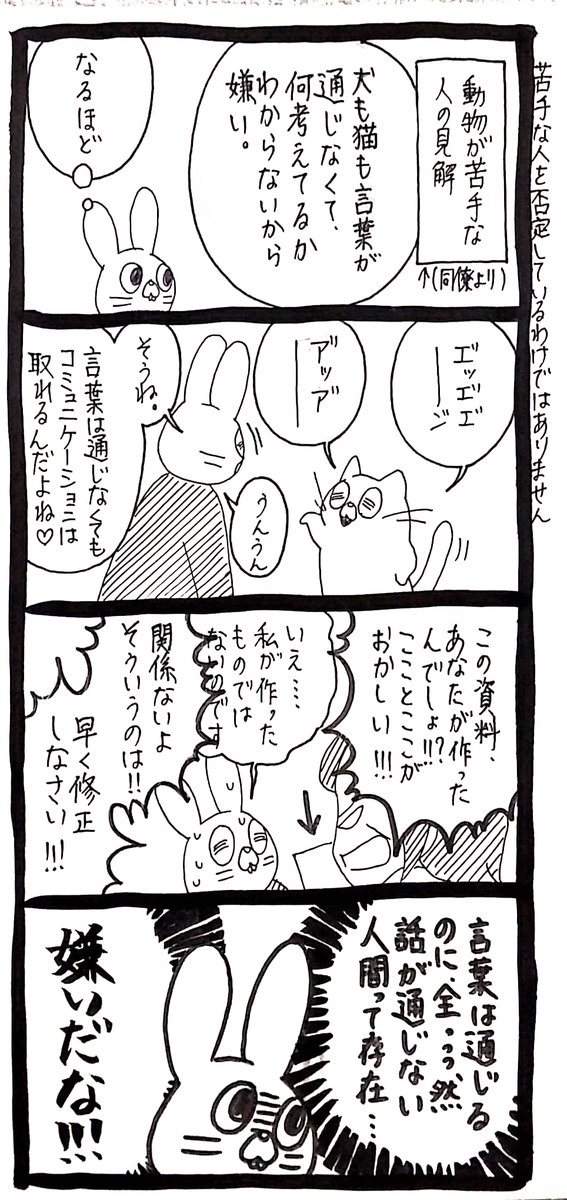 苦手な人を否定しているわけではありません
動物が苦手な
人の見解
↑(同僚より)
犬も猫も言葉が
通じなくて、
何考えてるか
わからないから
嫌い。
なるほど
エ゛ッエ゛エ゛
ージ
ア゛ッア゛
ー
そうね。
うんうん
言葉は通じなくても
コミュニケーションは
取れるんだよね♡
この資料、
あなたが作った
んでしょ!?!!
こことここが
おかしい!!!
いえ……
私が作った
ものでは
ないのです
関係ないよ
そういうのは!!
早く修正
しなさい!!!
言葉は通じる
のに、全っっっ然
話が通じない
人間って存在…
嫌いだな!!!